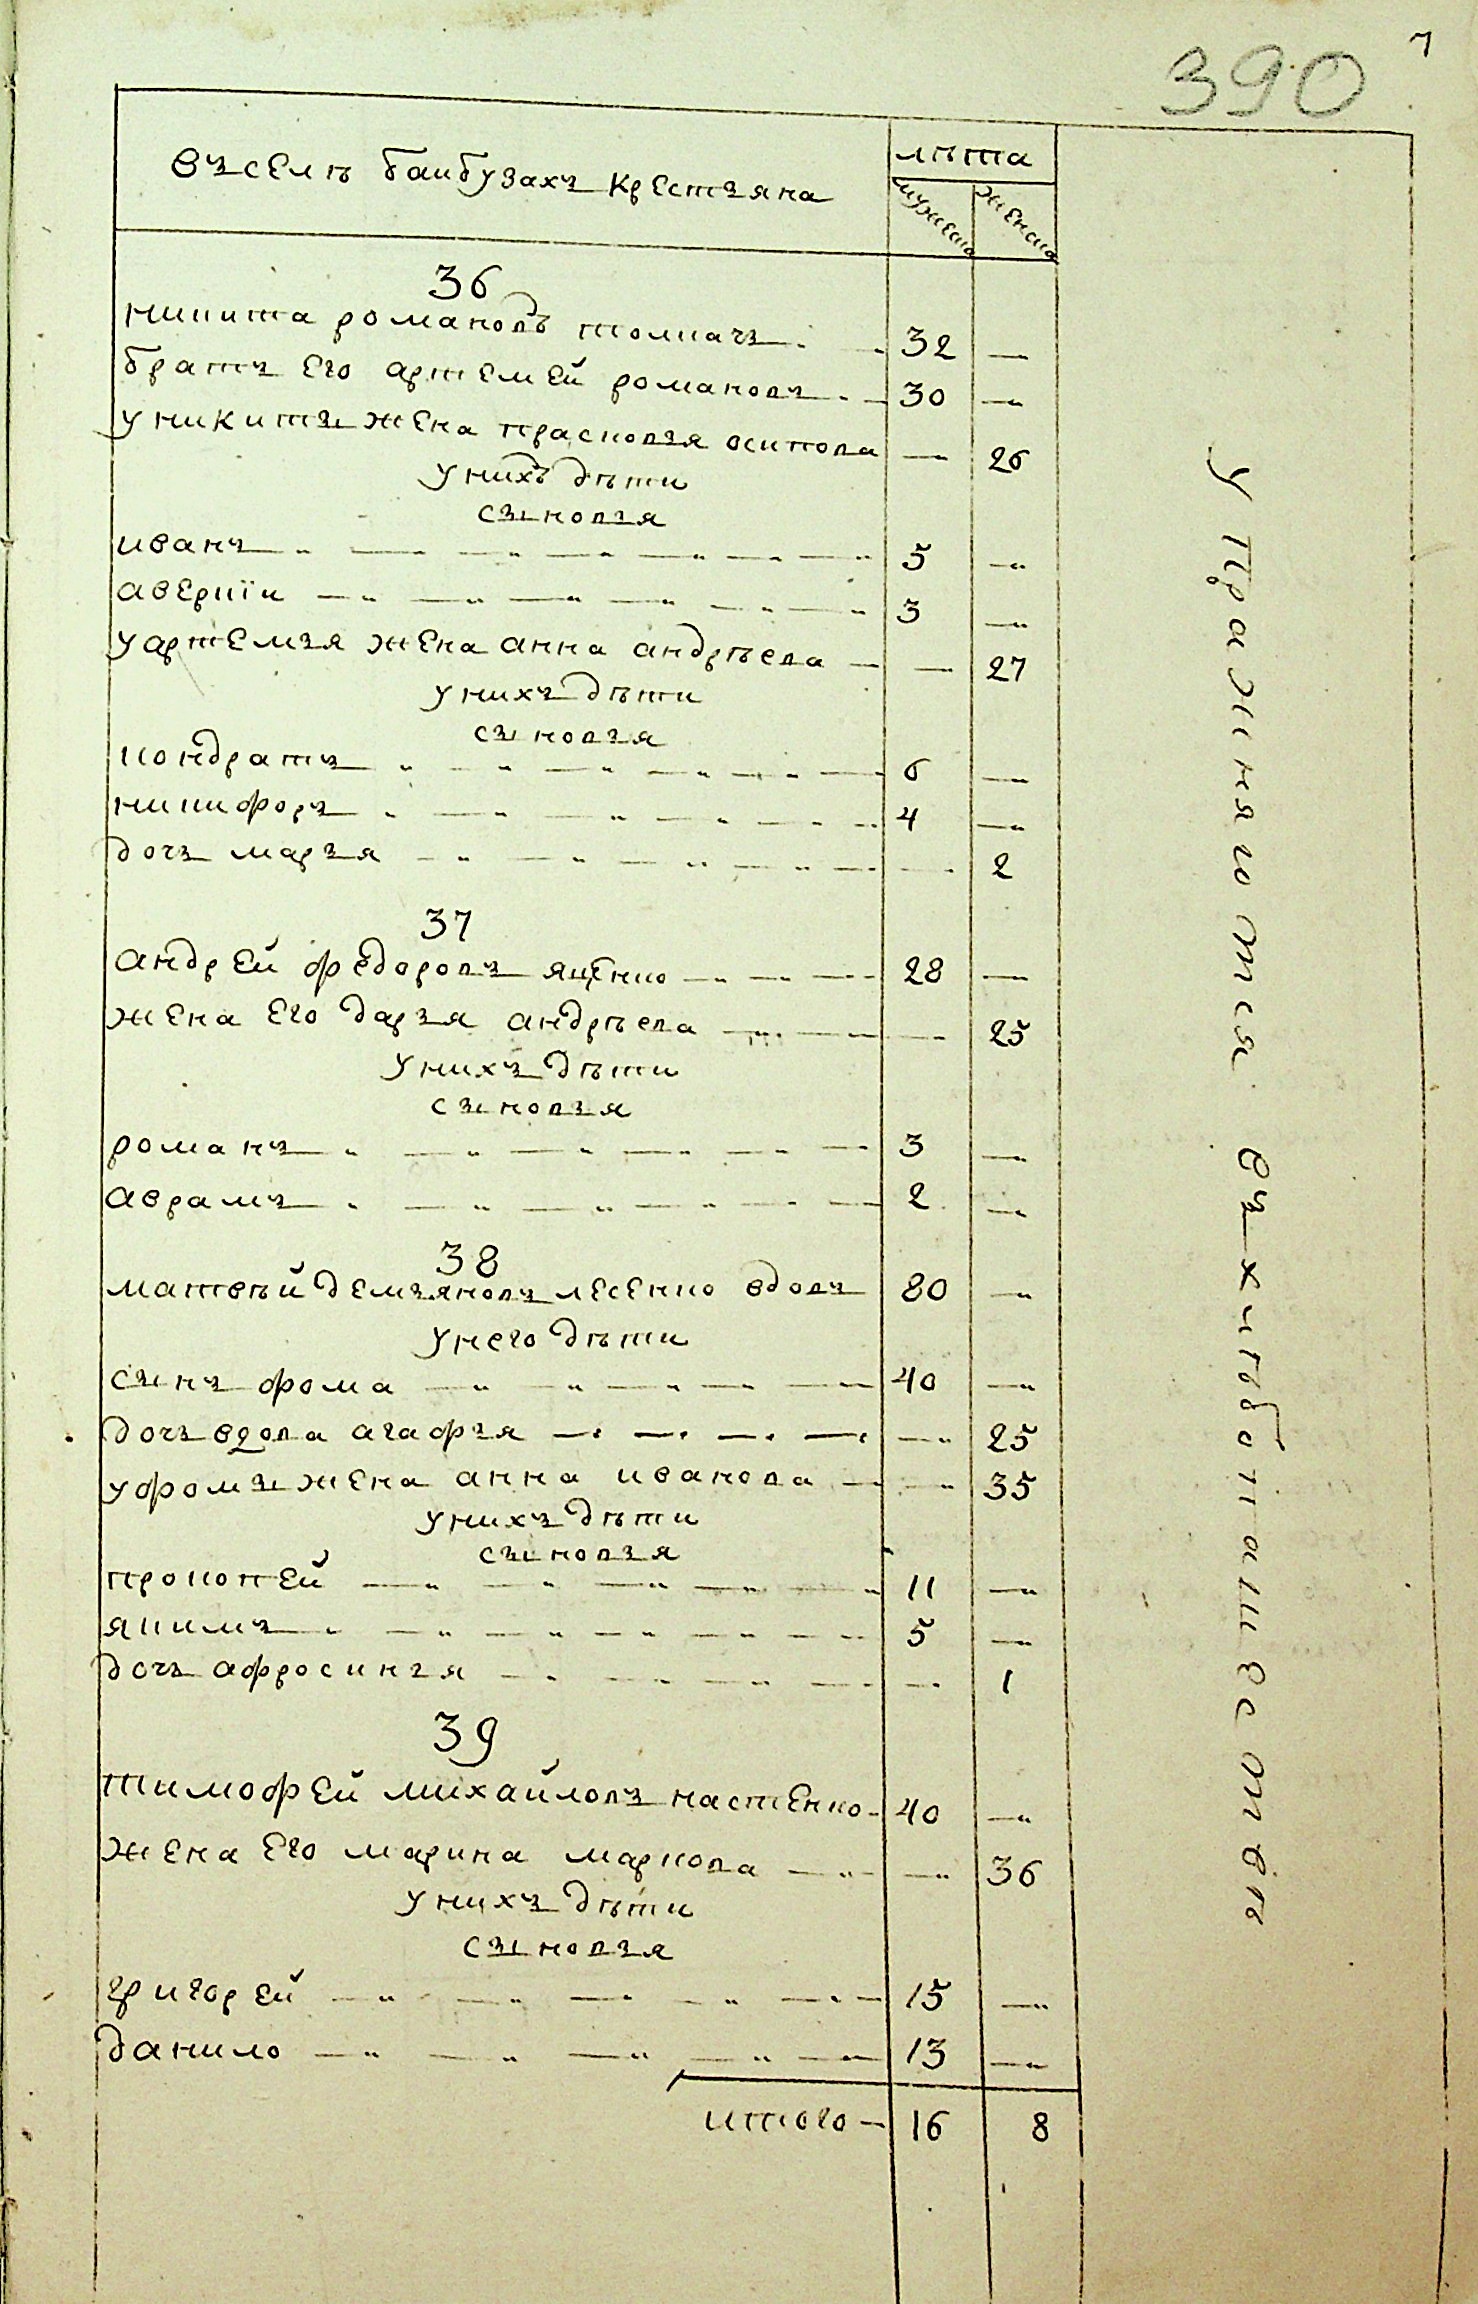 390
7
Въ селѣ Баибузахъ крестьяна
лѣта
мужеска
женска
36
никита романовъ толкачъ 32 —
братъ его артемей романовъ 30 —
у никиты жена прасковья осипова — 26
у нихъ дѣти
сыновья
иванъ 5 —
аверкіи 3 —
у артемья жена анна андрѣева — 27
у нихъ дѣти
сыновья
кондратъ 6 —
никифоръ 4 —
дочь марья — 2
37
андрей федоровъ ященко 28 —
жена его дарья андрѣева — 25
у нихъ дѣти
сыновья
романъ 3 —
аврамъ 2 —
38
матвѣй демьяновъ лесенко вдовъ 80 —
у него дѣти
сынъ фома 40 —
дочь вдова агафья — 25
у фомы жена анна иванова — 35
у нихъ дѣти
сыновья
прокопей 11 —
якимъ 5 —
дочь афросинья — 1
39
тимофей михайловъ настенко 40 —
жена его марина маркова — 36
у нихъ дѣти
сыновья
григорей 15 —
данило 13 —
итого 16 8
упражняются въ хлѣбопашествѣ